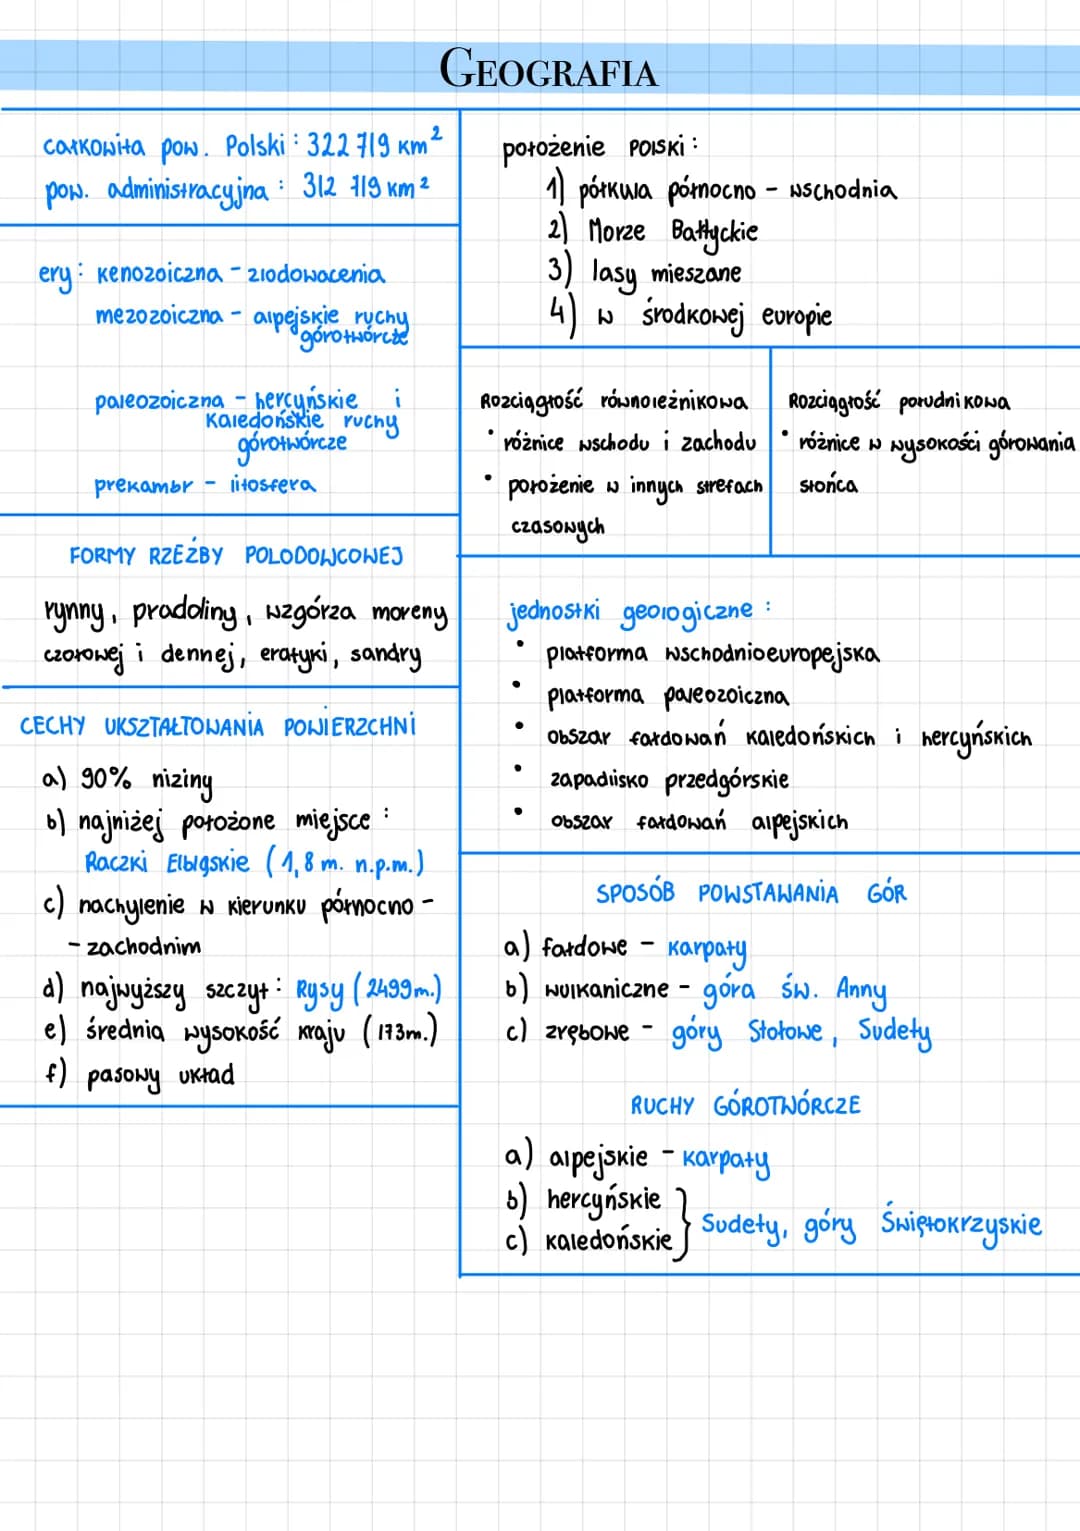 GEOGRAFIA
całkowita pow. Polski : 322 719 km²
pow. administracyjna : 312 719 km²
ery : kenozoiczna - zlodowacenia
mezozoiczna - alpejskie ruchy
górotwórcze
paleozoiczna - hercyńskie i
kaledońskie ruchy
górotwórcze
prekambr - litosfera
FORMY RZEŹBY POLODOWCOWEJ
rynny, pradoliny, wzgórza moreny
czołowej i dennej, eratyki, sandry
CECHY UKSZTAŁTOWANIA POWIERZCHNI
a) 90% niziny
b) najniżej położone miejsce :
Raczki Elbląskie (1,8 m. n.p.m.)
c) nachylenie w kierunku północno -
- zachodnim
d) najwyższy szczyt : Rysy (2499m.)
e) średnia wysokość kraju (173m.)
f) pasowy układ
położenie Polski :
1) półkula północno - wschodnia
2) Morze Bałtyckie
3) lasy mieszane
4) w środkowej europie
Rozciągłość równoleżnikowa
• różnice wschodu i zachodu
• położenie w innych strefach
czasowych
Rozciągłość południkowa
• różnice w wysokości górowania
słońca
jednostki geologiczne :
• platforma wschodnioeuropejska
• platforma paleozoiczna
• obszar fałdowań kaledońskich i hercyńskich
• zapadlisko przedgórskie
• obszar fałdowań alpejskich
SPOSÓB POWSTAWANIA GÓR
a) fałdowe - karpaty
b) wulkaniczne - góra św. Anny
c) zrębowe - góry Stołowe, Sudety
RUCHY GÓROTWÓRCZE
a) alpejskie - karpaty
b) hercyńskie
c) kaledońskie } Sudety, góry Świętokrzyskie